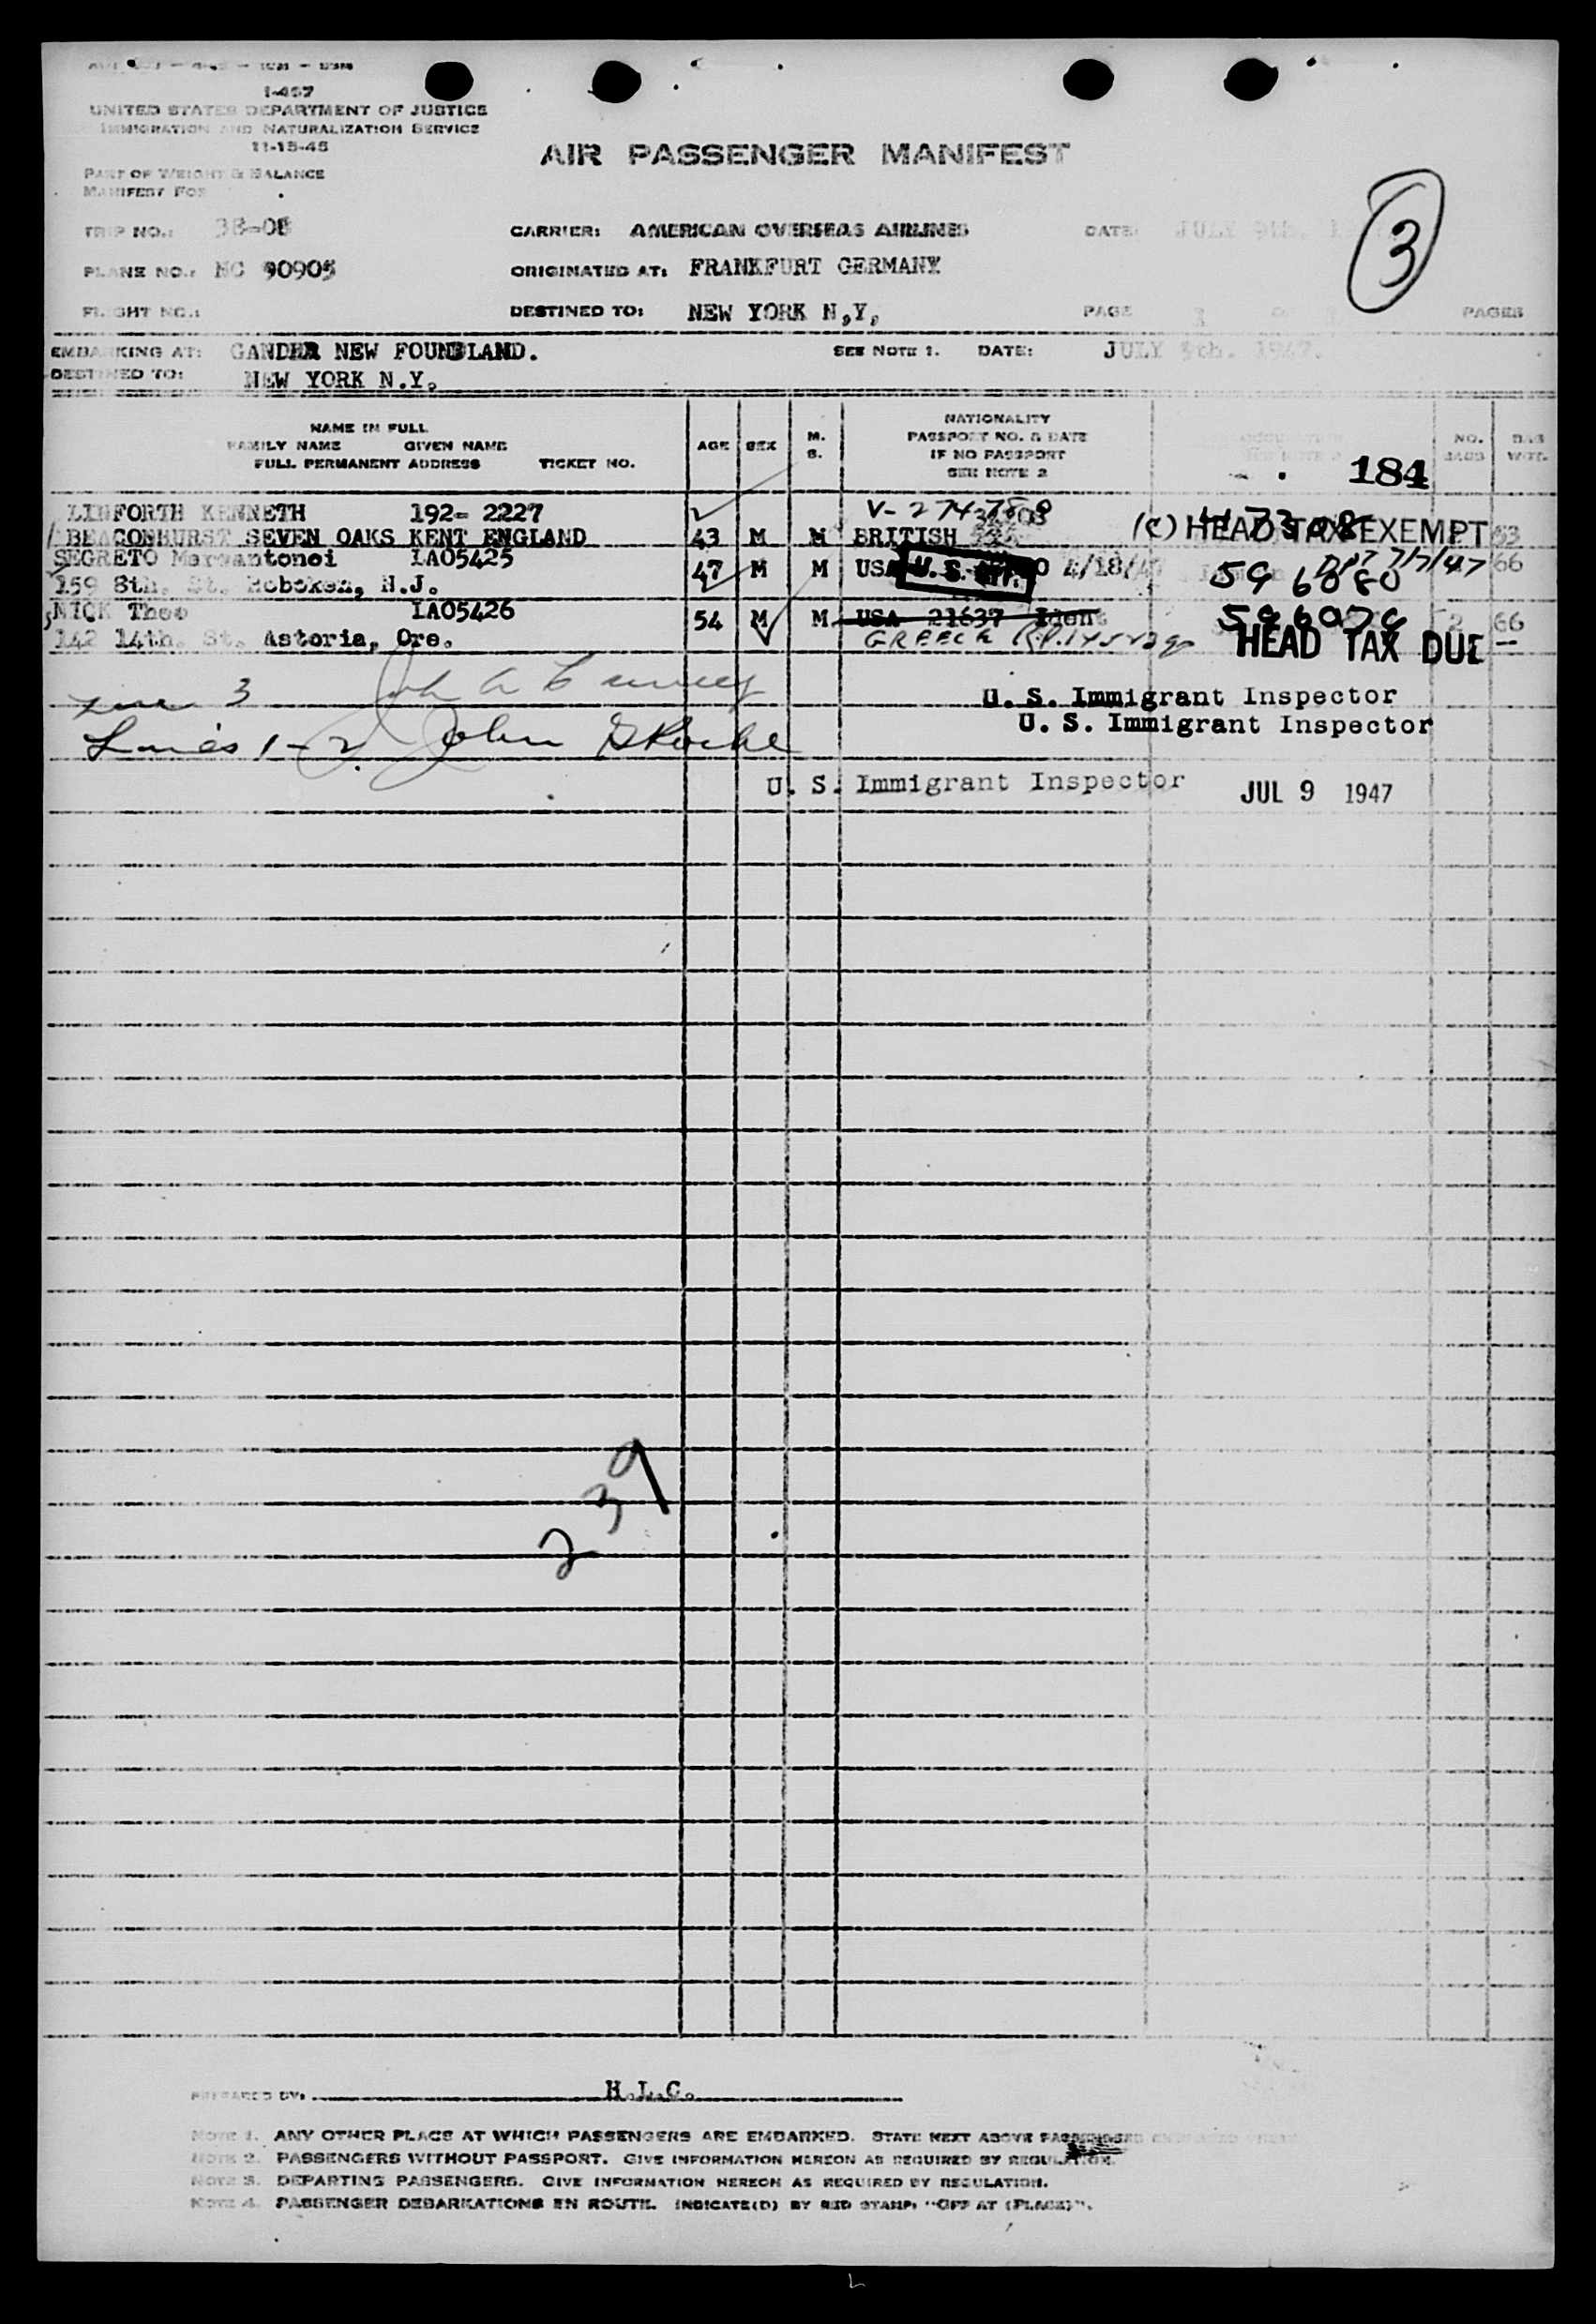 I-457
UNITED STATES DEPARTMENT OF JUSTICE
IMMIGRATION AND NATURALIZATION SERVICE
11-15-45
AIR PASSENGER MANIFEST
PART OF WEIGHT & BALANCE
MANIFEST FOR
3
TRIP NO.: CARRIER: AMERICAN OVERSEAS AIRLINES DATE: JULY 9th.
PLANE NO.: NC 90905 ORIGINATED AT: FRANKFURT GERMANY
FLIGHT NO.: DESTINED TO: NEW YORK N,Y, PAGE PAGES
EMBARKING AT: GANDER NEW FOUNDLAND. SEE NOTE 1. DATE: JULY 9th. 1947.
DESTINED TO: NEW YORK N.Y.
NAME IN FULL
FAMILY NAME GIVEN NAME
FULL PERMANENT ADDRESS TICKET NO.
AGE SEX M. S.
NATIONALITY
PASSPORT NO. & DATE
IF NO PASSPORT
SEE NOTE 2
NO. BAGS BAG WGT.
184
LINFORTH KENNETH 192- 2227
BEACONHURST SEVEN OAKS KENT ENGLAND 43 M M BRITISH (C) HEAD TAX EXEMPT 53
SEGRETO 1A05425 47 M M USA U. S. CIT. 4/18/ 66
159 8th. St. Hoboken, N.J.
3 NICK Theo 1A05426 54 M M USA 21637 Ident 2 66
142 14th. St. Astoria, Ore. GREECE HEAD TAX DUE
Line 3 U. S. Immigrant Inspector
U. S. Immigrant Inspector
Lines 1-2. John
U. S. Immigrant Inspector JUL 9 1947
239
PREPARED BY: H.L.C.
NOTE 1. ANY OTHER PLACE AT WHICH PASSENGERS ARE EMBARKED. STATE NEXT ABOVE PASSENGERS
NOTE 2. PASSENGERS WITHOUT PASSPORT. GIVE INFORMATION HEREON AS REQUIRED BY REGULATION.
NOTE 3. DEPARTING PASSENGERS. GIVE INFORMATION HEREON AS REQUIRED BY REGULATION.
NOTE 4. PASSENGER DEBARKATIONS EN ROUTE. INDICATE(D) BY RED STAMP: "OFF AT (PLACE)".